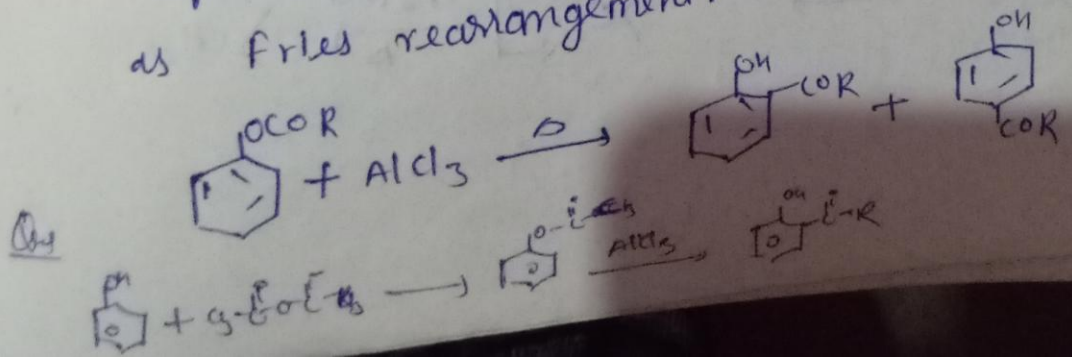 as Fries rearrangement.
OCOR + AlCl3 Δ → OH COR + OH COR
Que
OH + → O AlCl3 → OH C-R